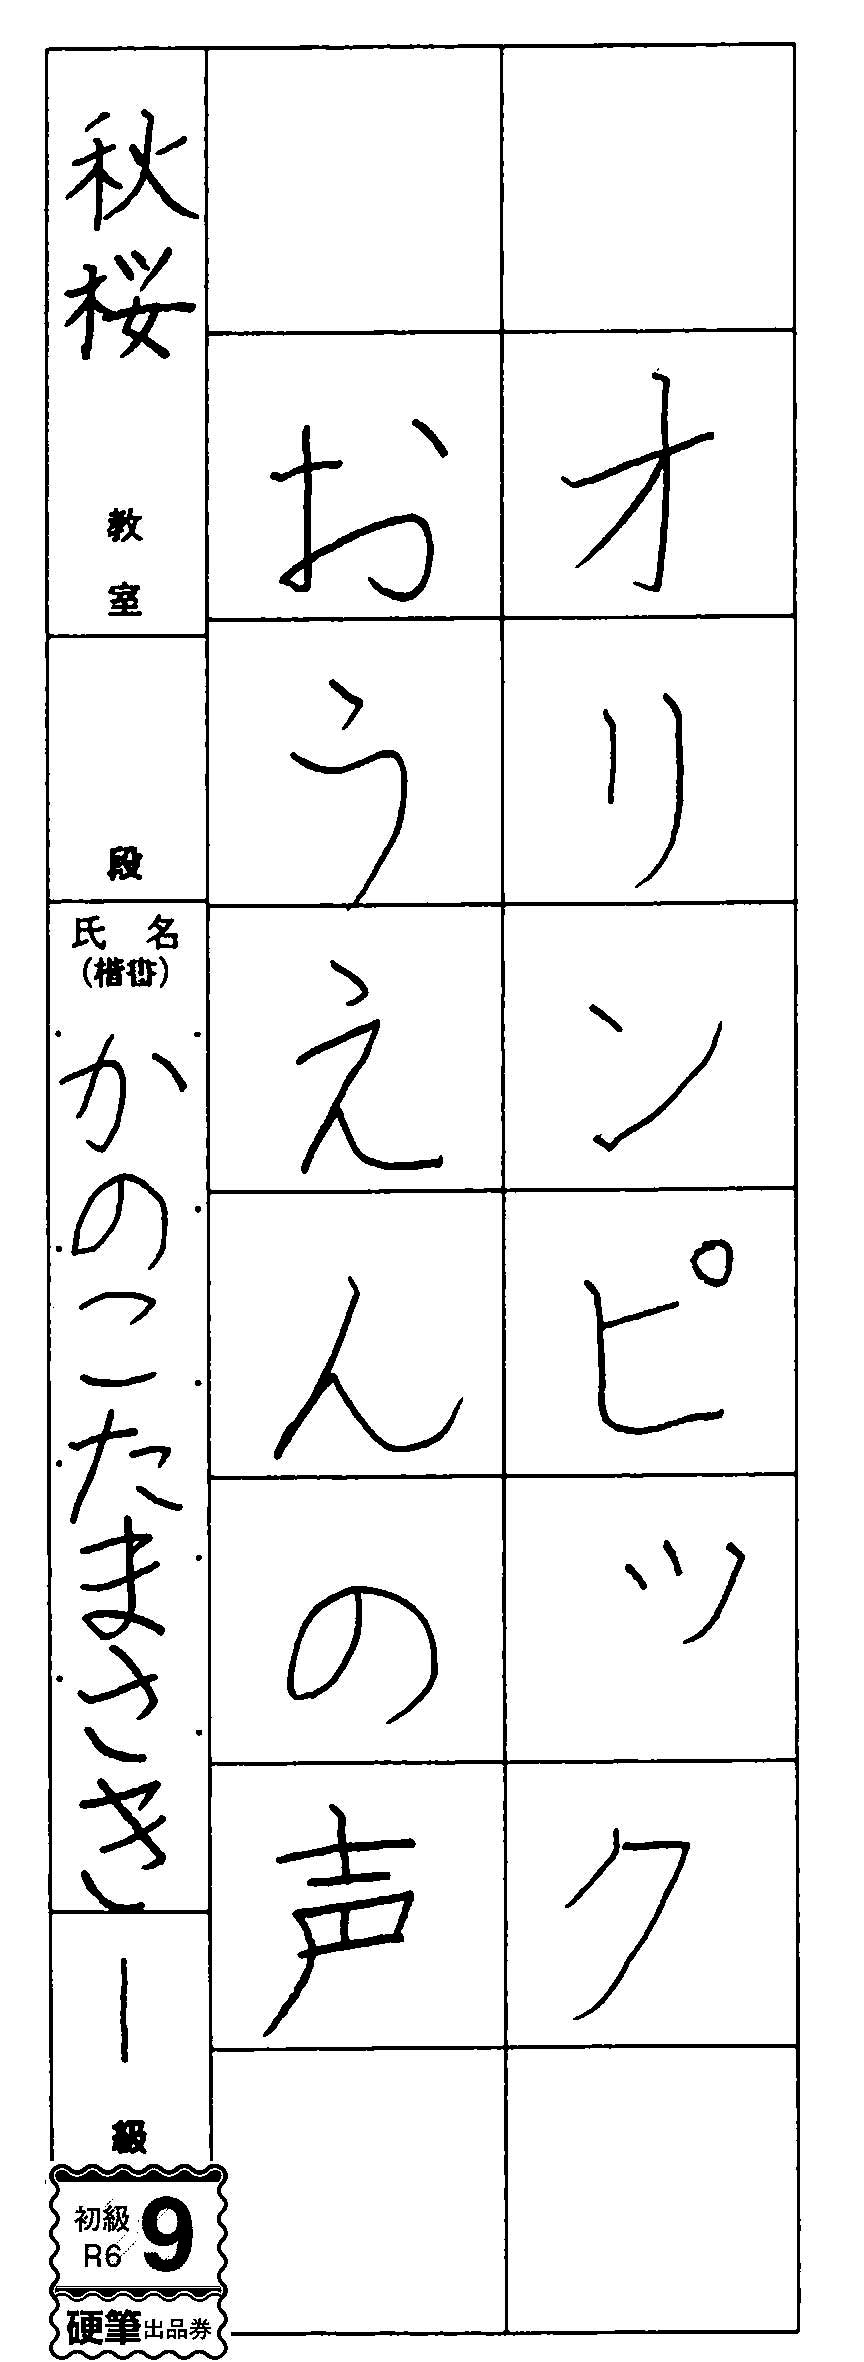 オリンピック
おうえんの声
秋桜 教室
段
氏名
(楷書)
かのこたまさき
一 級
初級
R6
9
硬筆出品券